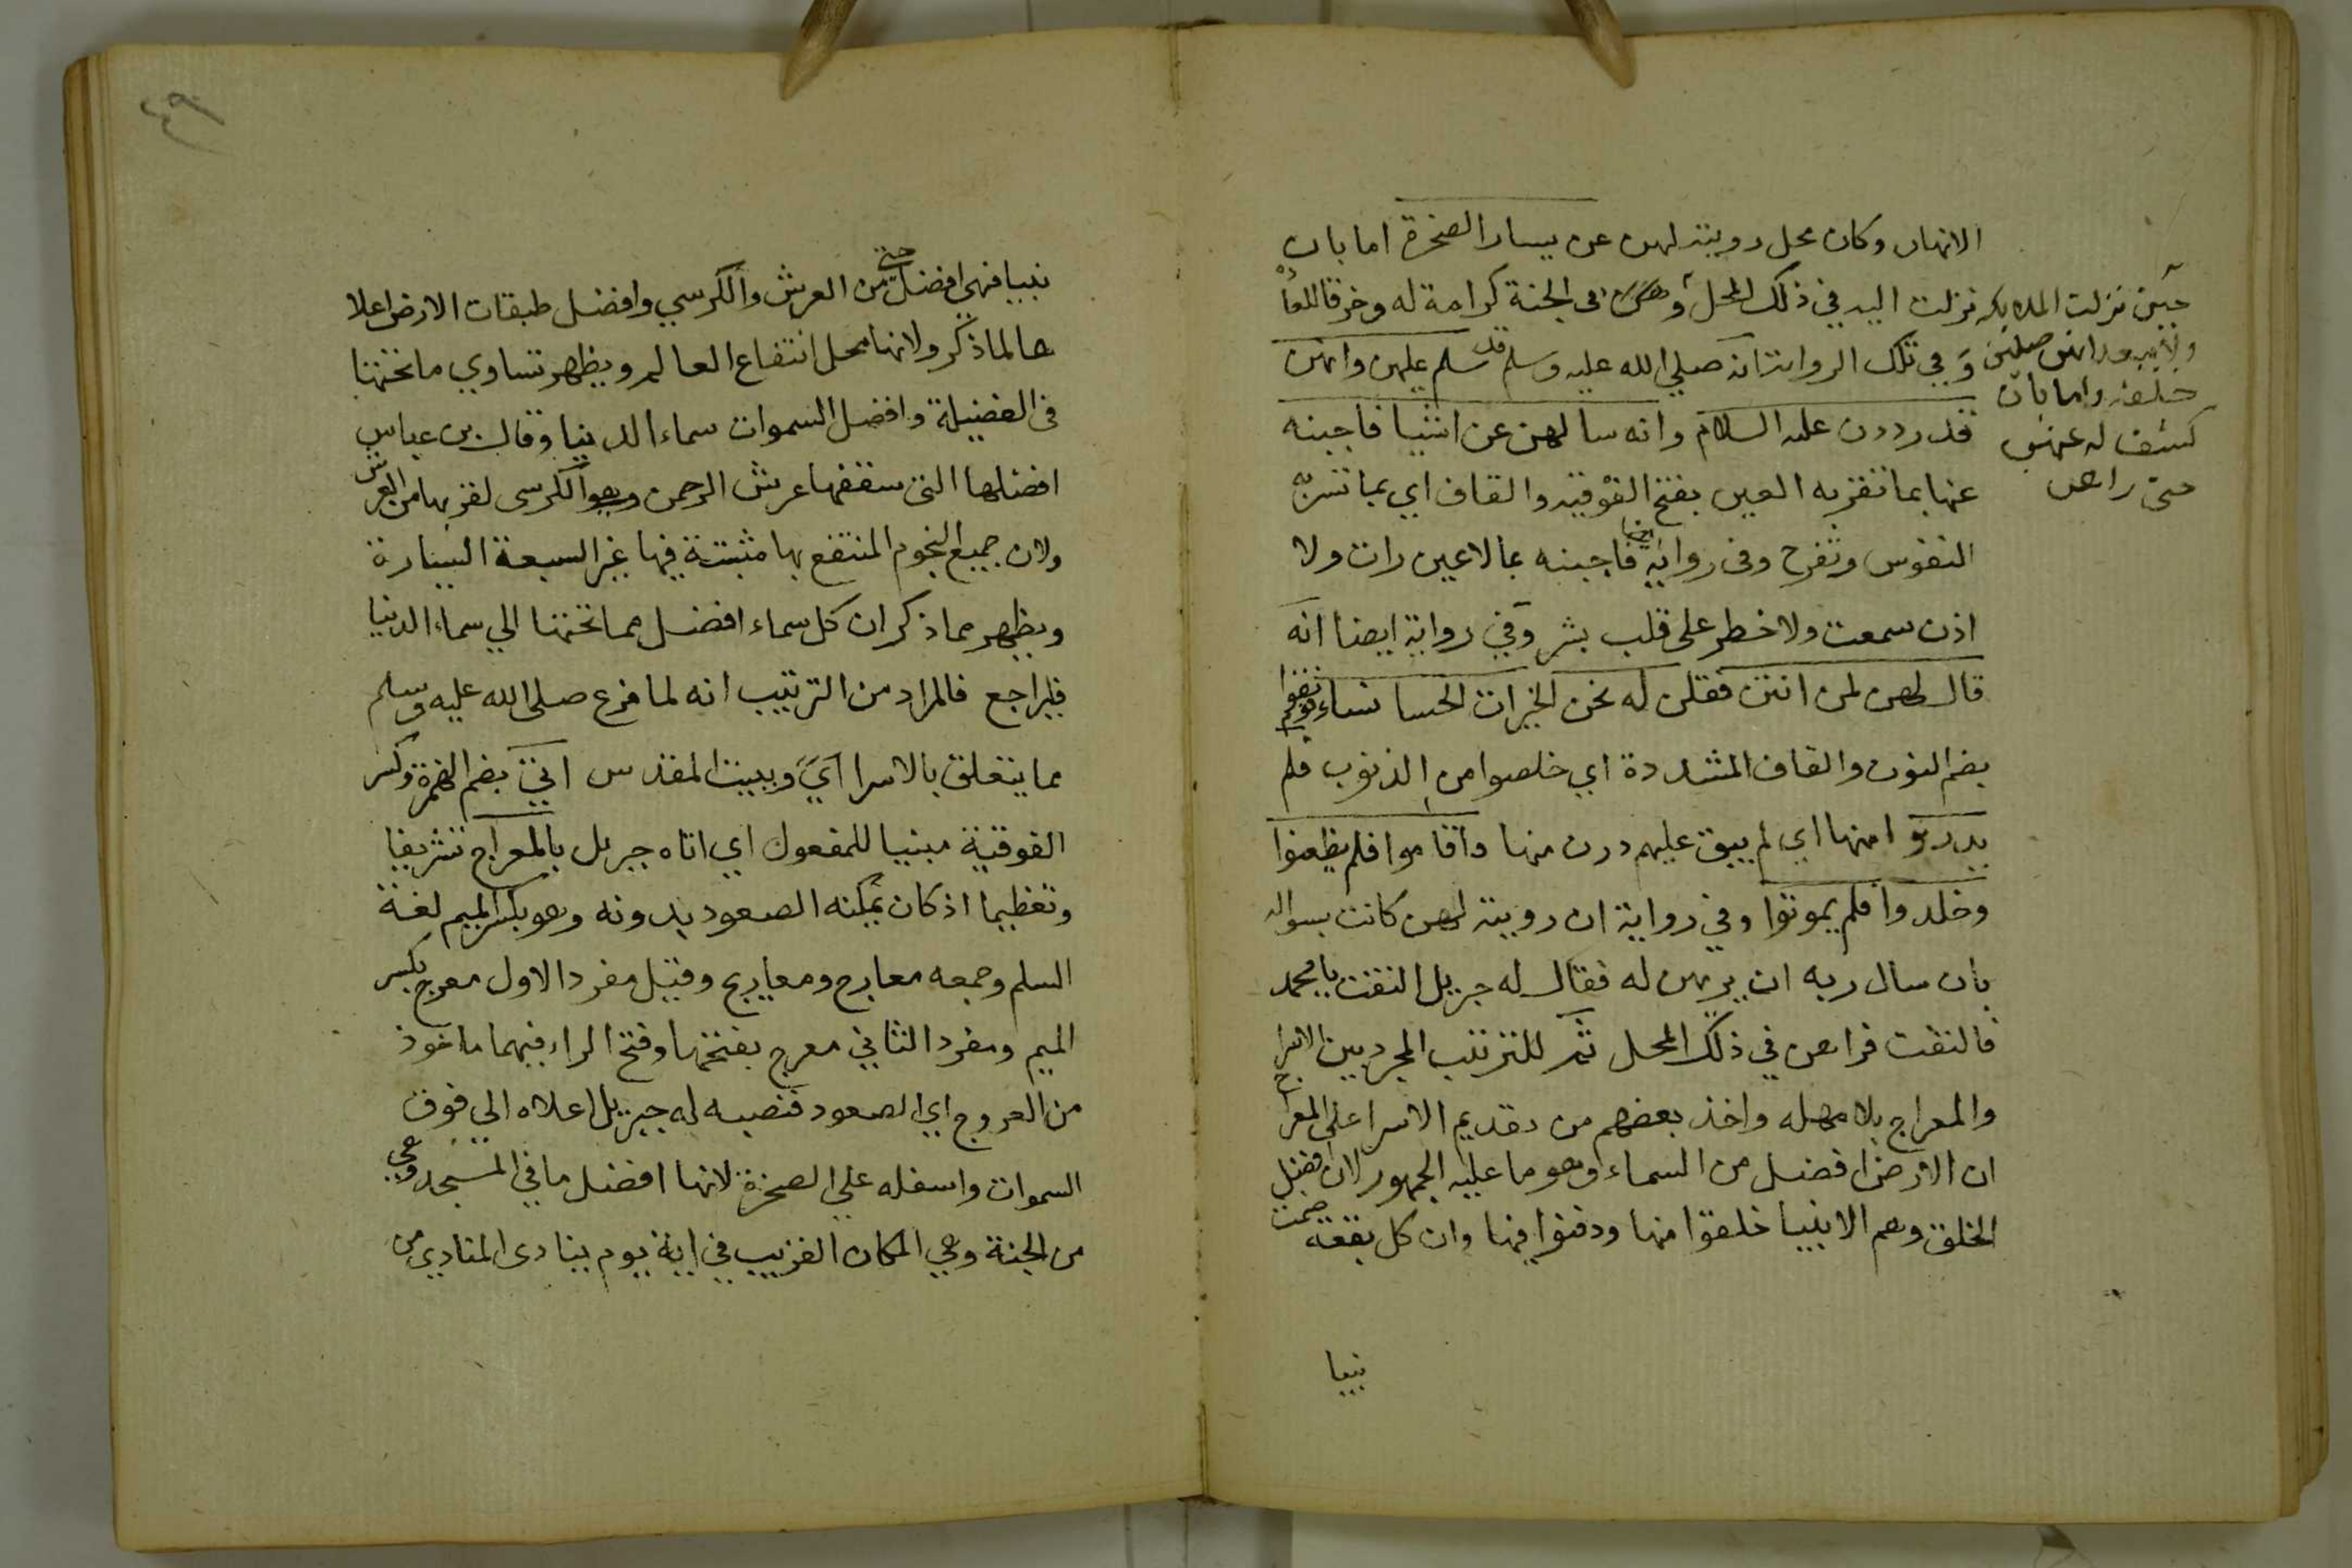 الانهار وكان محل رويته لهن عن يسار الصخرة اما بان
نزلت اليه في ذلك المحل وهن في الجنة كرامة له وخرقا للعادة
وفي تلك الرواية انه صلي الله عليه وسلم قد سلم عليهن وانهن
قد رددن عليه السلام وانه سالهن عن اشيا فاجبنه
عنها بما تقر به العين بفتح الفوقيه والقاف اي بما تسر به
النفوس وتفرح وفي رواية ايضا فاجبنه بما لا عين رات ولا
اذن سمعت ولا خطر على قلب بشر وفي رواية ايضا انه
قال لهن لمن انتن فقلن له نحن الخيرات الحسا نساء قوم نقوا
بضم النون والقاف المشددة اي خلصوا من الذنوب فلم
يدرنوا منها اي لم يبق عليهم درن منها واقاموا فلم يظعنوا
وخلدوا فلم يموتوا وفي رواية ان رويته لهن كانت بسواله
بان سال ربه ان يريهن له فقال له جبريل التفت يا محمد
فالتفت فراهن في ذلك المحل ثم للترتيب المجرد بين الاسرا
والمعراج بلا مهله واخذ بعضهم من تقديم الاسرا على المعراج
ان الارض افضل من السماء وهو ما عليه الجمهور لان افضل
الخلق وهم الانبيا خلقوا منها ودفنوا فيها وان كل بقعة ضمت
نبيا
حين نزلت الملايكه
كشف له عنهن
حتى راهن
نبيا فهي افضل حتى من العرش والكرسي وافضل طبقات الارض اعلا
ها لما ذكر ولانها محل انتفاع العالم ويظهر تساوي ما تحتها
في الفضيلة وافضل السموات سماء الدنيا وقال بن عباس
افضلها التي سقفها عرش الرحمن وهو الكرسي لقربها من العرش
ولان جميع النجوم المنتفع بها مثبتة فيها غير السبعة السيارة
ويظهر مما ذكر ان كل سماء افضل مما تحتها الي سماء الدنيا
فليراجع فالمراد من الترتيب انه لما فرغ صلى الله عليه وسلم
مما يتعلق بالاسرا اي وببيت المقدس اتي بضم الهمزة وكسر
الفوقية مبنيا للمفعول اي اتاه جبريل بالمعراج تشريفا
وتعظيما اذ كان يمكنه الصعود بدونه وهو بكسر الميم لغة
السلم وجمعه معارج ومعاريج وقيل مفرد الاول معرج بكسر
الميم ومفرد الثاني معرج بفتحها وفتح الراء فيهما ماخوذ
من العروج اي الصعود فنصبه له جبريل اعلاه الي فوق
السموات واسفله علي الصخرة لانها افضل ما في المسجد وهي
من الجنة وهي المكان القريب في اية يوم ينادى المنادي من